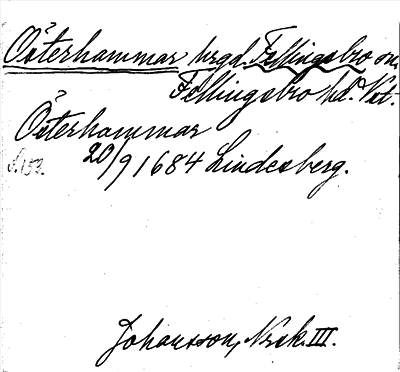 Österhammar hrgd. Fellingsbro sn,
Fellingsbro hd. Vst.
Österhammar
20/9 1684 Lindesberg.
S. 153.
Johansson, Norask. III.